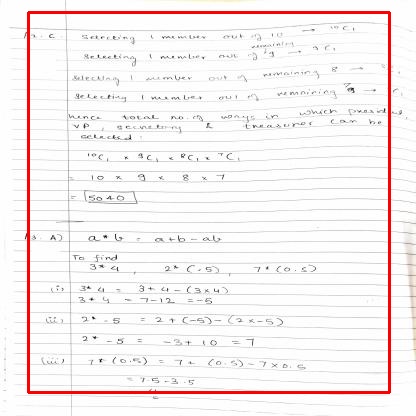 12. C. Selecting 1 member out of 10 → ¹⁰C₁
Selecting 1 member out of remaining 9 → ⁹C₁
Selecting 1 member out of remaining 8 →
Selecting 1 member out of remaining → C₁
hence total no. of ways in which
VP, secretory & treasurer can be
selected:
¹⁰C₁ × ⁹C₁ × ⁸C₁ × ⁷C₁
= 10 × 9 × 8 × 7
= 5040
13. A) a * b = a + b - ab
To find
3 * 4, 2 * (-5), 7 * (0.5)
(i) 3 * 4 = 3 + 4 - (3 × 4)
3 * 4 = 7 - 12 = -5
(ii) 2 * -5 = 2 + (-5) - (2 × -5)
2 * -5 = -3 + 10 = 7
(iii) 7 * (0.5) = 7 + (0.5) - 7 × 0.5
= 7.5 - 3.5